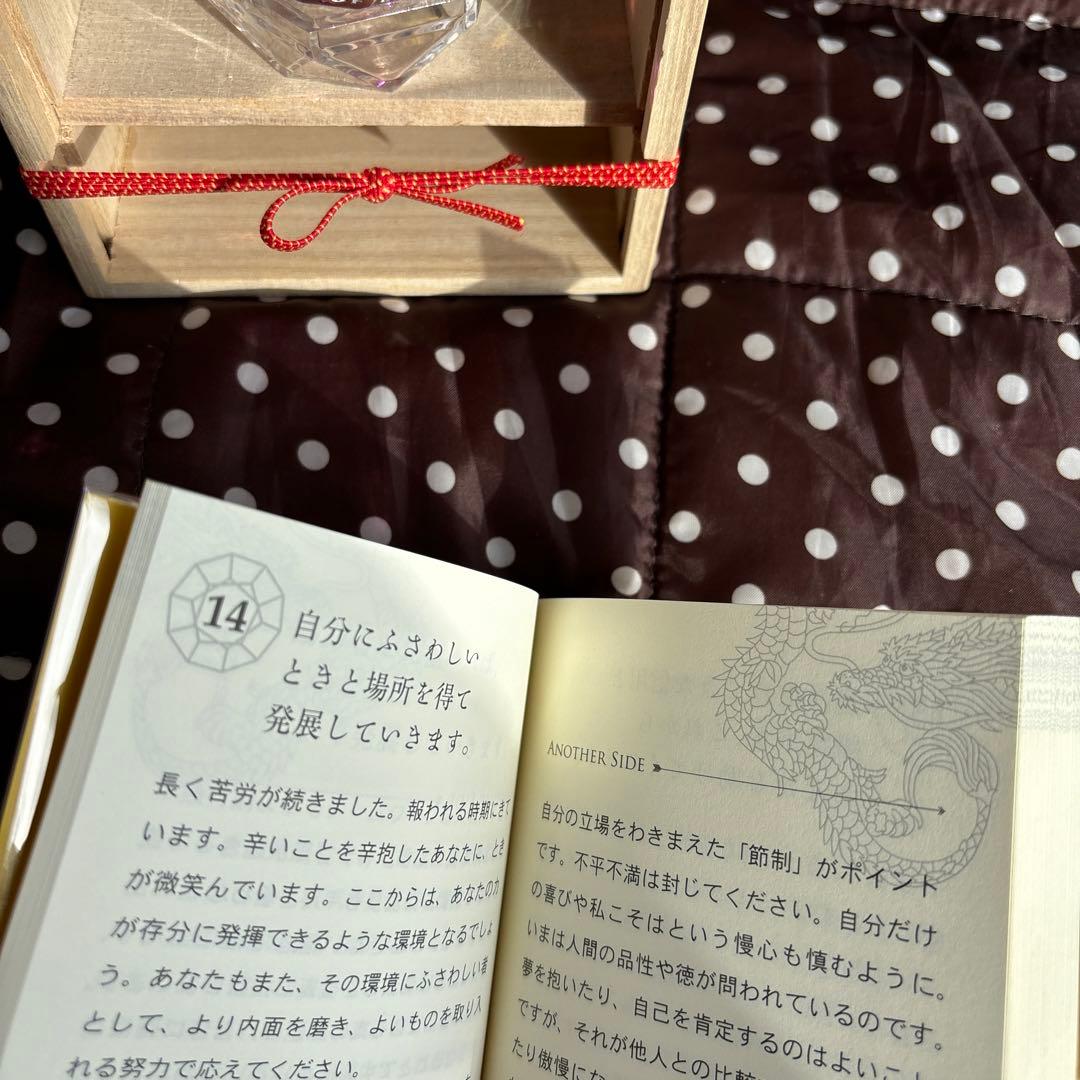 14
自分にふさわしい
ときと場所を得て
発展していきます。
長く苦労が続きました。報われる時期にきて
います。辛いことを辛抱したあなたに、とき
が微笑んでいます。ここからは、あなたの力
が存分に発揮できるような環境となるでしょ
う。あなたもまた、その環境にふさわしい者
として、より内面を磨き、よいものを取り入
れる努力で応えてください。
ANOTHER SIDE
自分の立場をわきまえた「節制」がポイント
です。不平不満は封じてください。自分だけ
の喜びや私こそはという慢心も慎むように。
いまは人間の品性や徳が問われているのです。
夢を抱いたり、自己を肯定するのはよいこと
ですが、それが他人との比較
たり傲慢にな